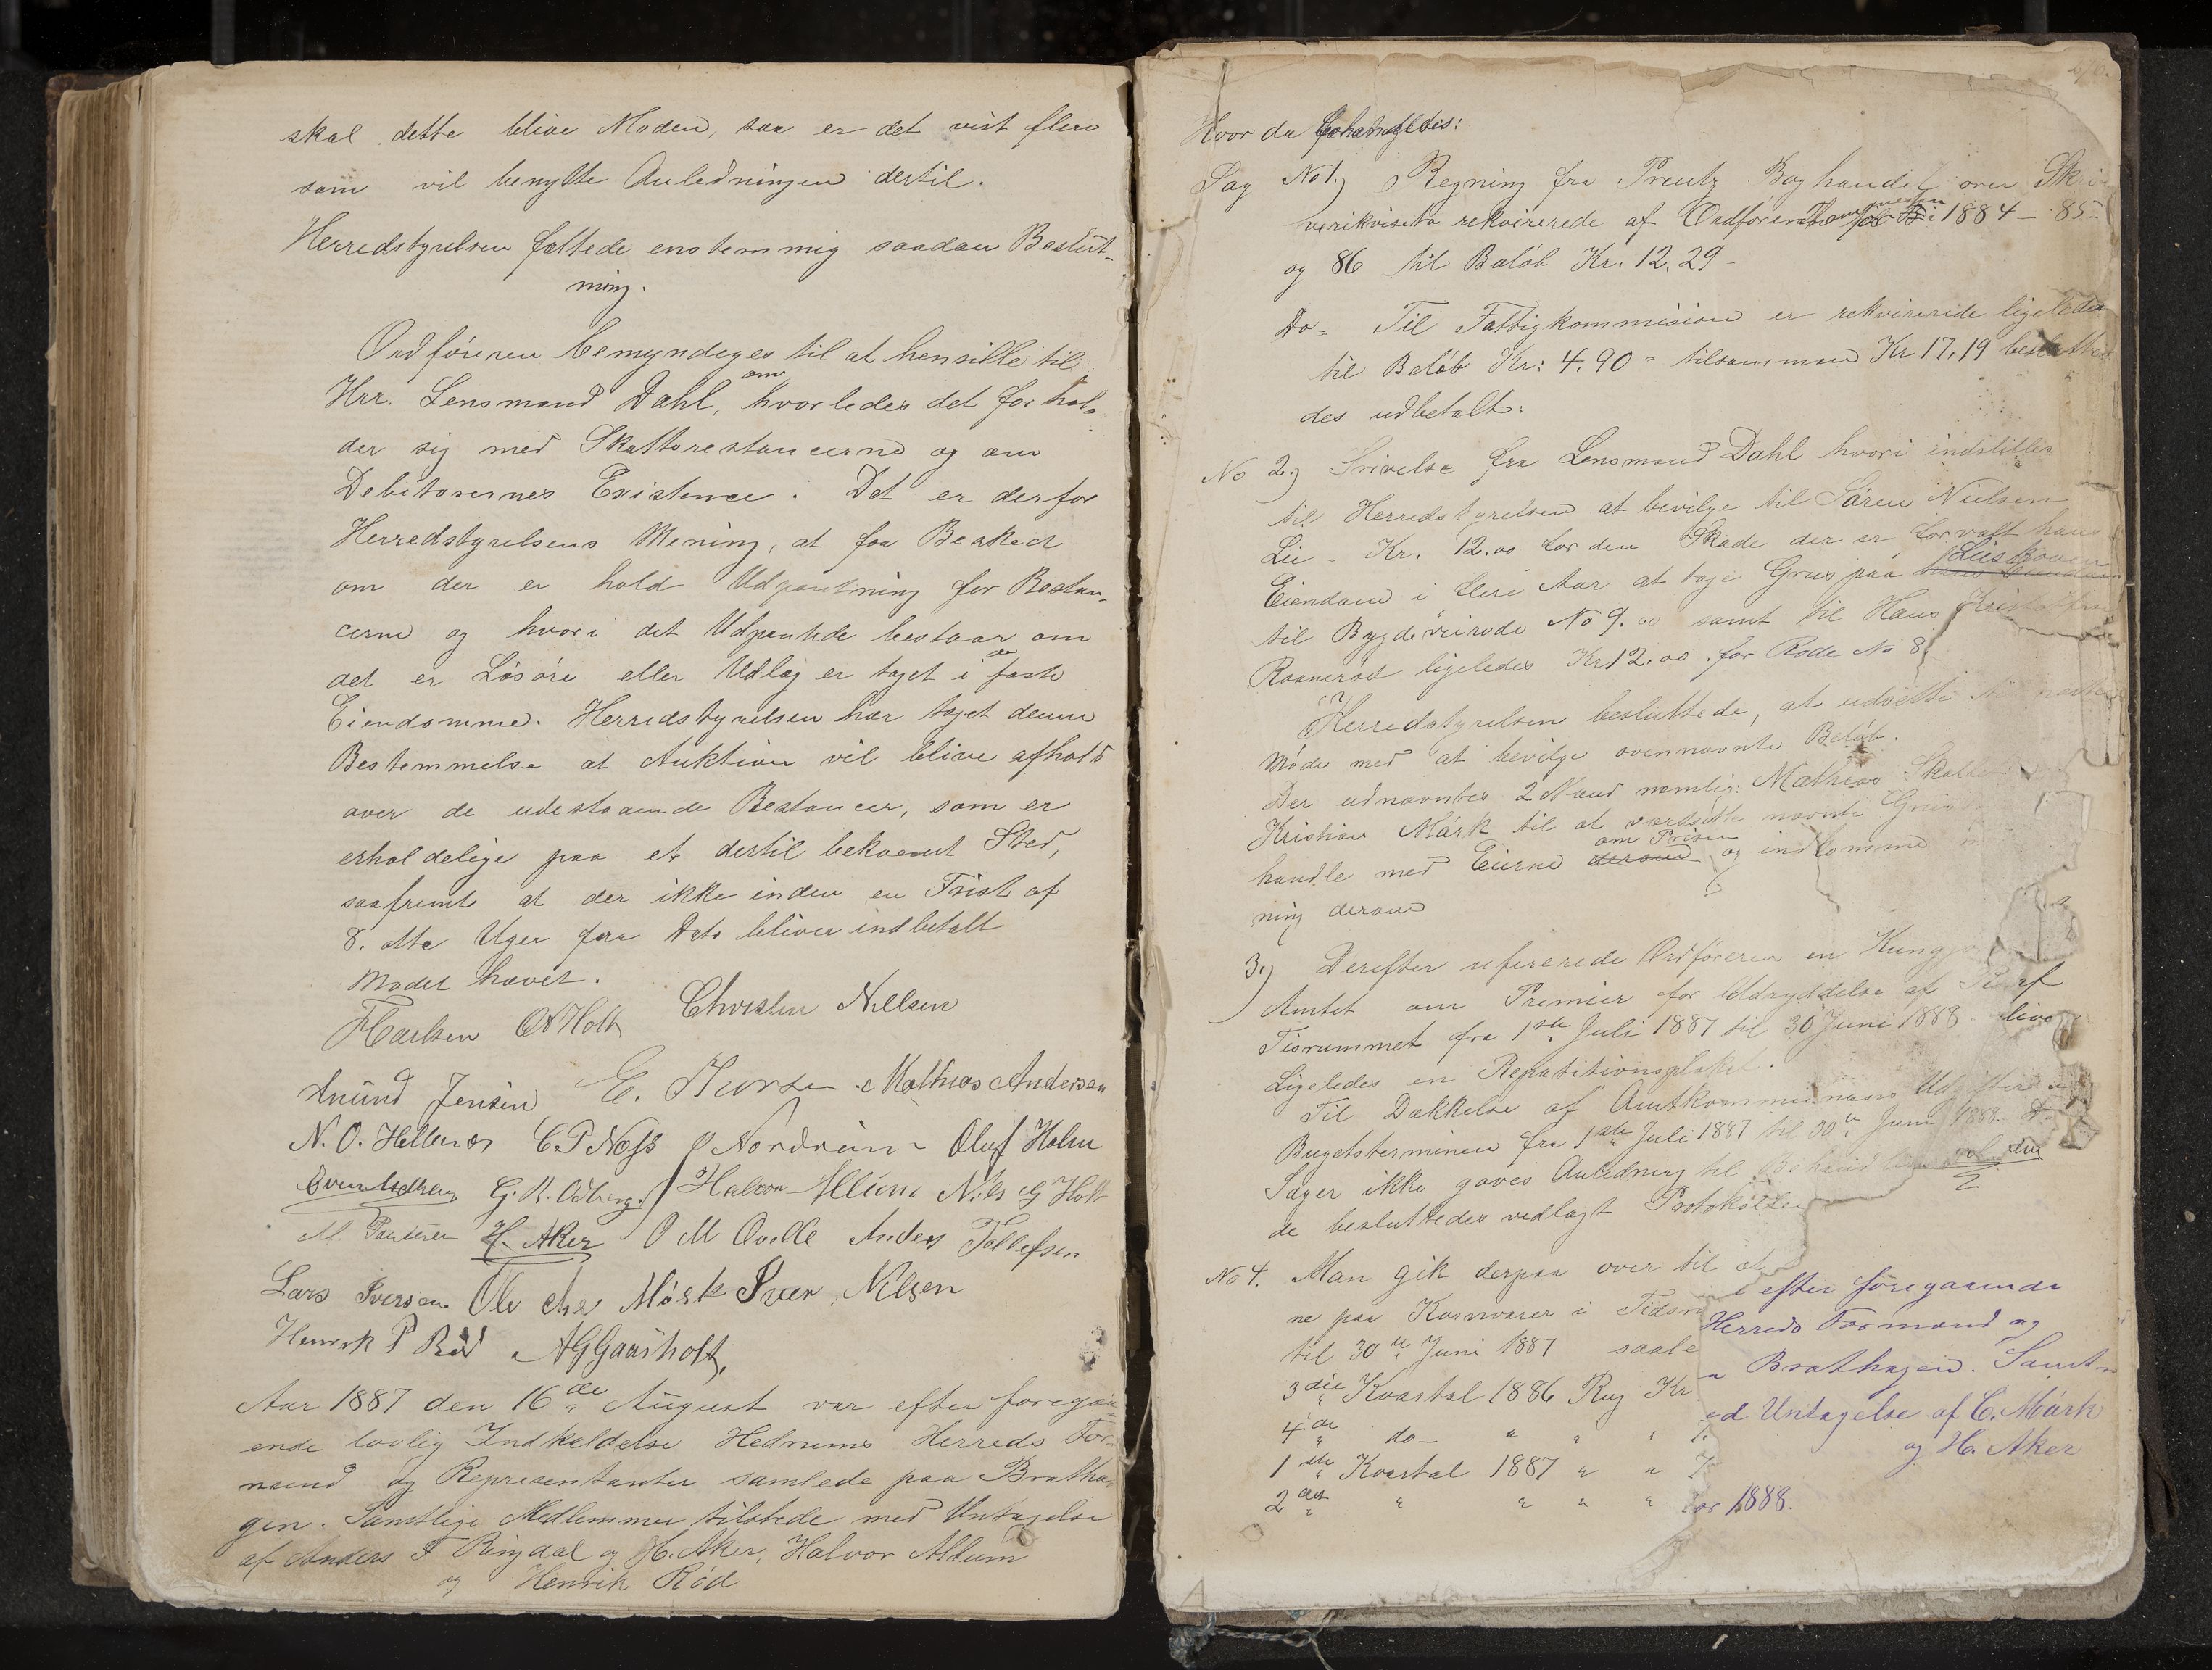 skal dette blive Moden, saa er det vist flere
som vil benytte Anledningen dertil.
Herredstyrelsen fattede enstemmig saadan Beslut-
ning.
Ordføreren bemyndiges til at henstille til
Hrr. Lensmand Dahl, om hvorledes det forhol-
der sig med Skatterestancerne og om
Debitorernes Existence. Det er derfor
Herredstyrelsens Mening, at faa Besked
om der er hold Udpantning for Restan-
cerne og hvori det Udpantede bestaar om
det er Løsøre eller Udlæg er taget i de faste
Eiendomme. Herredstyrelsen har taget denne
Bestemmelse at Auktion vil blive afholdt
over de udestaaende Restancer, som er
erholdelige paa et dertil bekvemt Sted,
saafremt at der ikke inden en Frist af
8. otte Uger fra Dato bliver indbetalt
Mødet hævet.
F Karlsen OA Holt Christen Nillsen
Anund Jensen E. Mathias Andersen
N. O. Hellenes C. P Noss O Nordrum Oluf Holm
G. K. Odberg. Halvor Allum Nils G Holt
M. Paulsen H. Aker O M Qvelle Anders Tollefsen
Lars Iversen Ole Chr Mørk Iver Nilsen
Henrik P Rød AG Gaasholt,
Aar 1887 den 16de August var efter foregaa-
ende lovlig Indkaldelse Hedrums Herreds For-
mænd og Representanter samlede paa Bratha-
gen. Samtlige Medlemmer tilstede med Untagelse
af Anders F Ringdal og H. Aker, Halvor Allum
og Henrik Rød
Hvor da behandledes:
Sag No 1.) Regning fra Preutz Boghandel over Skri
verikvisita rekvirerede af Ordføreren i 1884 - 85-
og 86 til Beløb Kr. 12.29 -
Do - Til Fattigkommision er rekvirerede ligeledes
til Beløb Kr: 4.90 - tilsammen Kr 17.19 beslutte
des udbetalt.
No 2.) Srivelse fra Lensmand Dahl hvori indstilles
til Herredstyrelsen at bevilge til Søren Nielsen
Lie - Kr. 12.00 for den Skade der er forvolt hans
Eiendom i flere Aar at tage Grus paa Lieskoven
til Bygdeveirode No 9.00 samt til Hans Kristoffer
Raanerød ligeledes Kr 12.00. for Rode No 8
Herredstyrelsen besluttede, at udsætte til næste
Møde med at bevilge ovennævnte Beløb.
Der udnævntes 2 Mænd nemlig: Mathias
Kristian Mørk til at værdsette nævnte Grus
handle med Eierne derom om Prisen og indkomme
ning derom
3.) Derefter refererede Ordføreren en Kungj
Amtet om Premier for Udryddelse af
Tisrummet fra 1ste Juli 1887 til 30 Juni 1888
Ligeledes en Repatitionsplakat.
Til Dækkelse af Amtkommunens Udgifter
Bugetsterminen fra 1ste Juli 1887 til 30te Juni 1888.
Sager ikke gaves Anledning til Behandling
de besluttedes vedlagt Protokollen
No 4. Man gik derpaa over til at
ne paa Kornvarer i Tidsr
til 30te Juni 1887 saale
3die Kvartal 1886 Rug Kr
4de do - " " "
1ste Kvartal 1887 " "
2det " " " "
efter foregaaende
Herreds Formænd og
Brathagen. Samt-
ed Untagelse af C. Mørk
og H. Aker
for 1888.